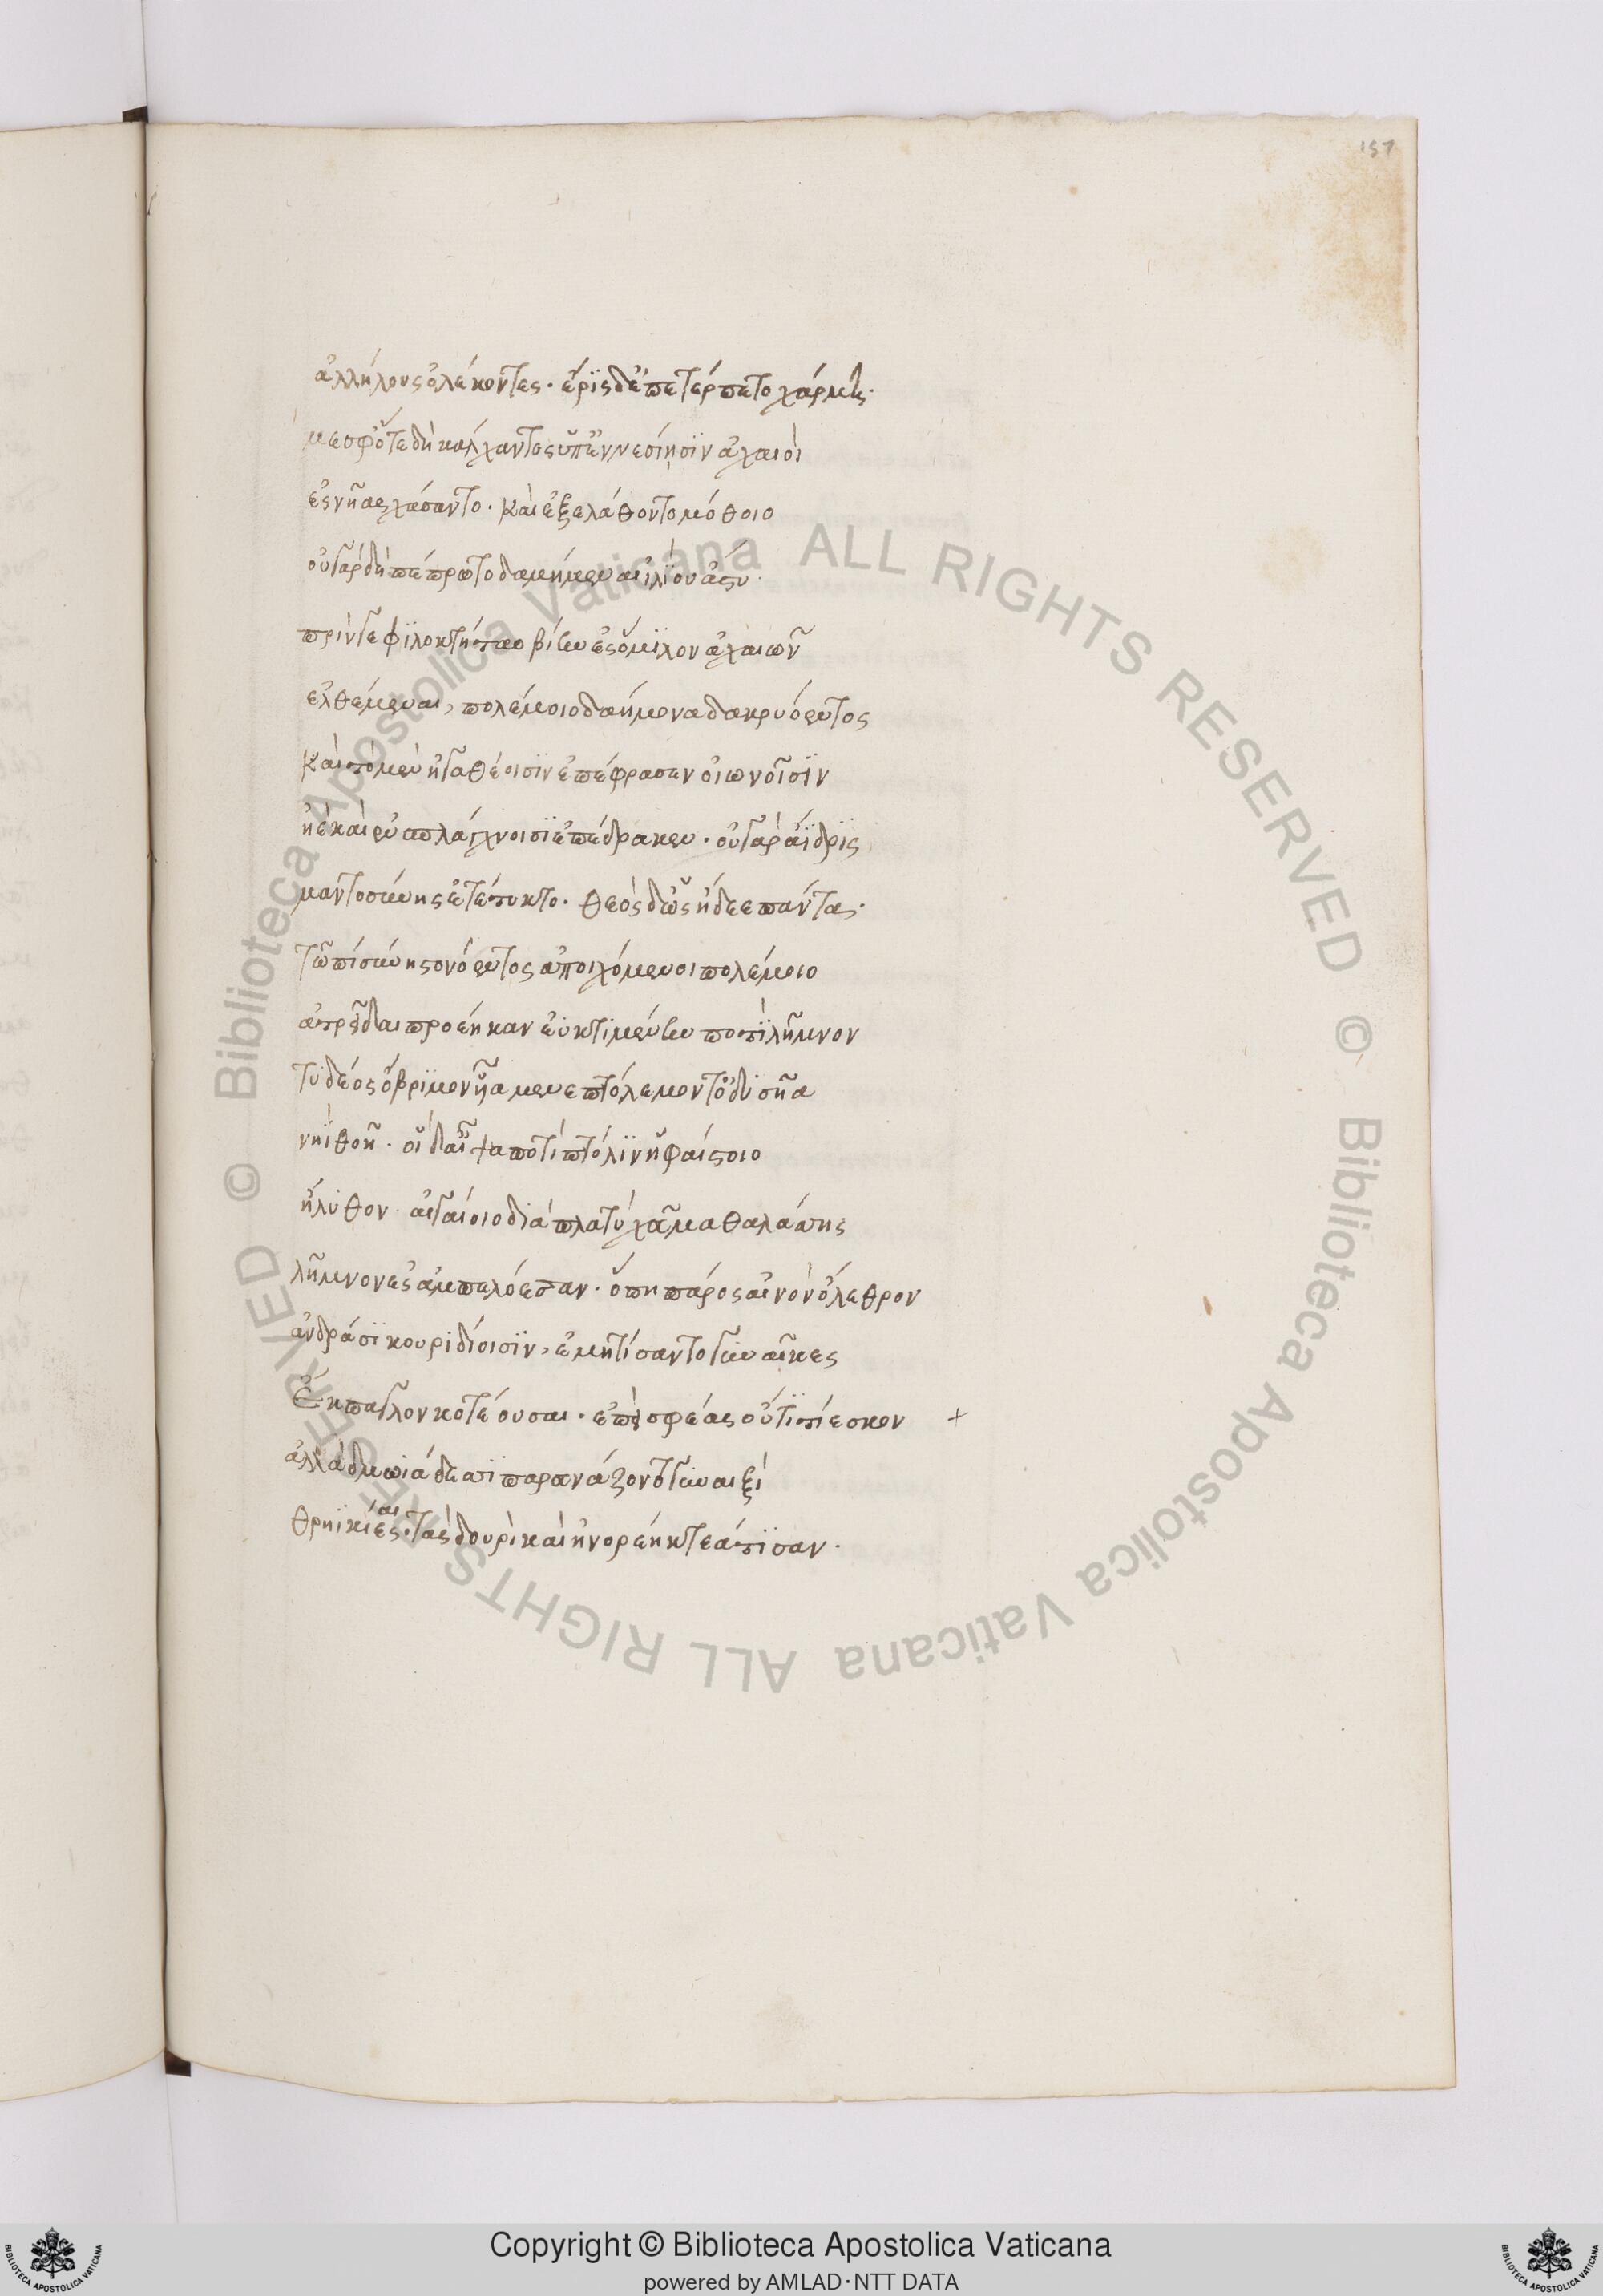 157
ἀλλήλους ὀλέκοντες· ἔρϊς δ' ἐπετέρπετο χάρμῃ·
μεσφ' ὅτε δὴ κάλχαντος ὑπ' ἐννεσίῃσϊν ἀχαιοὶ
ἐς νῆας χάσαντο· καὶ ἐξελάθοντο μόθοιο
οὐ γὰρ δὴ πέπρωτο δαμήμεναι ἰλίου ἄστυ·
πρίν γε φϊλοκτήταο βίην ἐς ὅμϊλον ἀχαιῶν
ἐλθέμεναι, πολέμοιο δαήμονα δακρυόεντος
καὶ τὸ μὲν ἠγαθέοισϊν ἐπέφρασεν οἰωνοῖσϊν
ἠὲ καὶ ἐν σπλάγχνοισϊ ἐπέδρακεν· οὐ γὰρ ἄϊδρϊς
μαντοσύνης ἐτέτυκτο· θεὸς δ' ὣς ᾔδεε πάντα·
τῶ πίσυνοι στονόεντος ἀποιχόμενοι πολέμοιο
ἀτρεῖδαι προέηκαν ἐϋκτϊμένην ποτὶ λῆμνον
τυδέος ὄβρϊμον ἷα μενεπτόλεμον τ' ὀδυσῆα
νηῒ θοῇ· οἳ δ' αἶψα ποτὶ πτόλϊν ἡφαίστοιο
ἤλυθον αἰγαίοιο διὰ πλατὺ χεῦμα θαλάσσης
λῆμνον ἐς ἀμπελόεσσαν· ὅπη πάρος αἰνὸν ὄλεθρον
ἀνδράσϊ κουριδίοισϊν, ἐμητίσαντο γυναῖκες
Ἔκπαγλον κοτέουσαι· ἐπεὶ σφέας οὔτϊ τίεσκον +
ἀλλὰ δμωϊάδεσσϊ παρϊάναζον γυναιξὶ
θρηϊκίαις· τὰς δουρὶ καὶ ἠνορέῃ κτεάτϊσαν·
Copyright © Biblioteca Apostolica Vaticana
powered by AMLAD·NTT DATA
© Biblioteca Apostolica Vaticana ALL RIGHTS RESERVED © Biblioteca Apostolica Vaticana ALL RIGHTS RESERVED
BIBLIOTECA APOSTOLICA VATICANA
BIBLIOTECA APOSTOLICA VATICANA